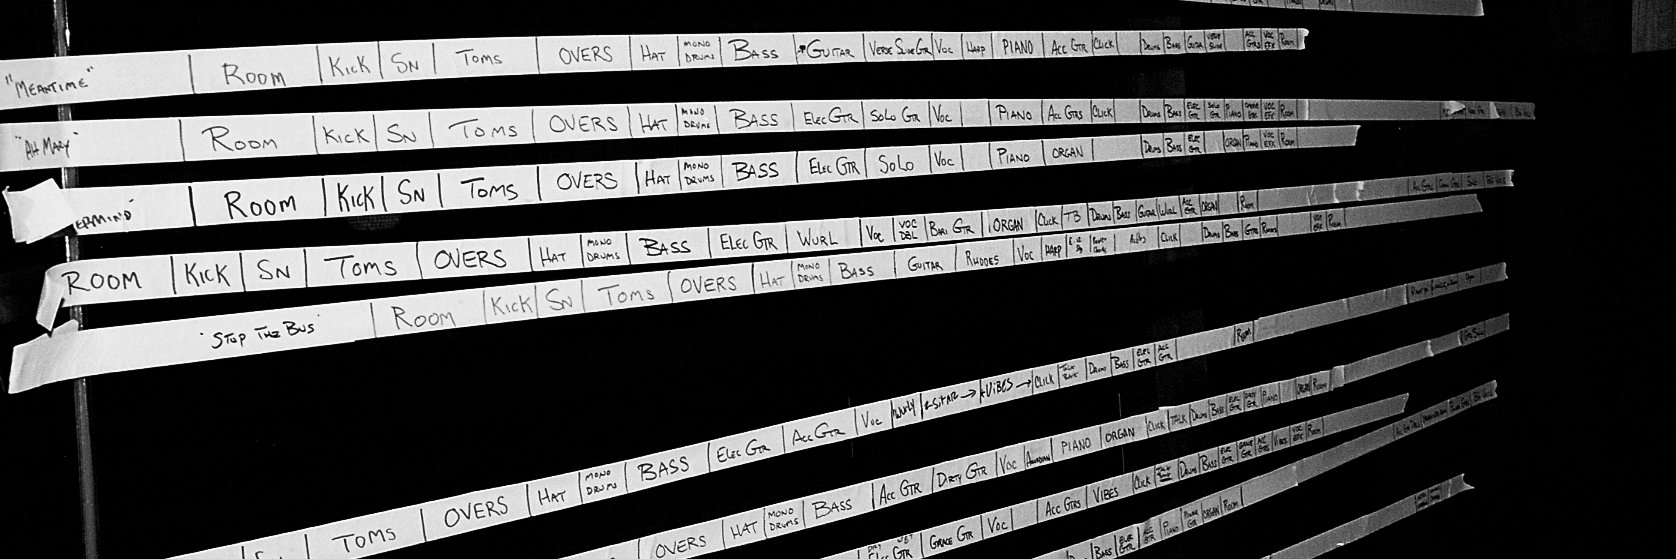 "MEANTIME" ROOM KICK SN TOMS OVERS HAT MONO DRUMS BASS GUITAR VERSE SLIDE GTR VOC HARP PIANO ACC GTR CLICK DRUMS BASS GUITAR VERSE SLIDE ACC GTRS VOC EFX ROOM
"AH MARY" ROOM KICK SN TOMS OVERS HAT MONO DRUMS BASS ELEC GTR SOLO GTR VOC PIANO ACC GTRS CLICK DRUMS BASS ELEC GTR SOLO GTR PIANO VOC EFX ROOM
ERMIND" ROOM KICK SN TOMS OVERS HAT MONO DRUMS BASS ELEC GTR SOLO VOC PIANO ORGAN DRUMS BASS ELEC GTR ORGAN PIANO VOC EFX ROOM
ROOM KICK SN TOMS OVERS HAT MONO DRUMS BASS ELEC GTR WURL VOC VOC DBL BARI GTR ORGAN CLICK TB DRUMS BASS GUITAR WURL ACC GTR ORGAN ROOM
"STOP THE BUS" ROOM KICK SN TOMS OVERS HAT MONO DRUMS BASS GUITAR RHODES VOC HARP CLICK DRUMS BASS GTRS RHODES VOC EFX ROOM
TOMS OVERS HAT MONO DRUMS BASS ELEC GTR ACC GTR VOC WURLY SITAR → VIBES → CLICK TALK BACK DRUMS BASS ELEC GTR ACC GTR ROOM
OVERS HAT MONO DRUMS BASS ACC GTR DIRTY GTR VOC PIANO ORGAN CLICK TALK DRUMS BASS ELEC GTR DIRTY GTR PIANO ORGAN ROOM
ELEC GTR GRACE GTR VOC ACC GTRS VIBES CLICK DRUMS BASS ELEC GTR GRACE GTR ACC GTRS VIBES VOC EFX ROOM
BASS ELEC GTR ACC GTR PIANO ORGAN ROOM